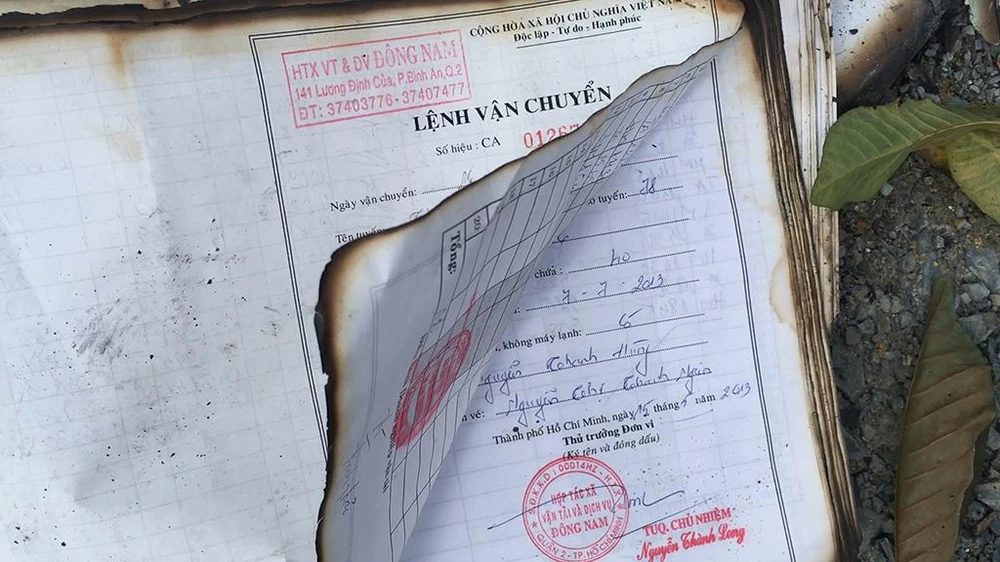 CỘNG HÒA XÃ HỘI CHỦ NGHĨA VIỆT NAM
Độc lập - Tự do - Hạnh phúc
HTX VT & DV ĐÔNG NAM
141 Lương Định Của, P.Bình An,Q.2
ĐT: 37403776 - 37407477
LỆNH VẬN CHUYỂN
Số hiệu : CA 0126
Ngày vận chuyển:
Tên tuyến
tuyến: 78
20
Tổng:
chứa : 40
7 - 7 - 2013
, không máy lạnh:
Nguyễn Thanh Hùng
về: Nguyễn Thanh
Thành phố Hồ Chí Minh, ngày 15 tháng 5 năm 2013
Thủ trưởng Đơn vị
(Ký tên và đóng dấu)
Đ.K.K.D : 00014HZ - H.T.X
HỢP TÁC XÃ
VẬN TẢI VÀ DỊCH VỤ
ĐÔNG NAM
QUẬN 2 - TP.HỒ CHÍ MINH
TUQ. CHỦ NHIỆM
Nguyễn Thành Long